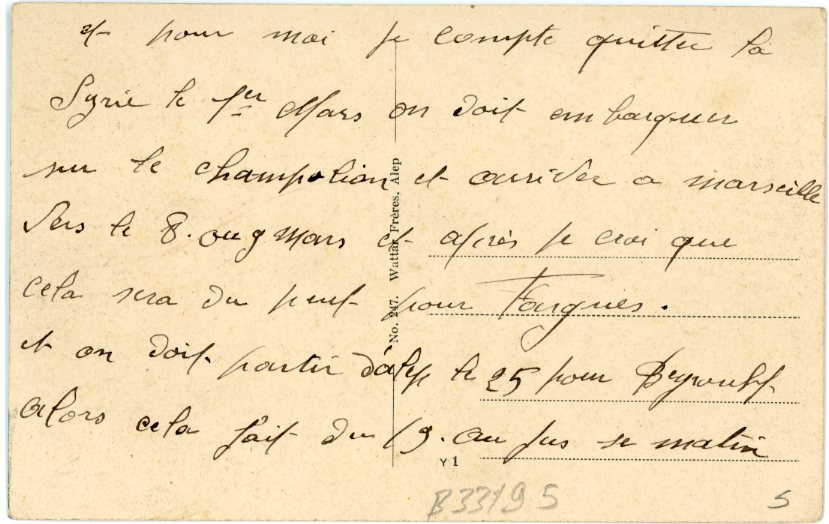 et pour moi je compte quitter la
Syrie le 1er Mars on doit embarquer
sur le champolion et arrider a marseille
Vers le 8. ou 9 Mars et après je croi que
cela sera du peut pour Fargues.
et on doit partir d'alep le 25 pour Beyrouth
alors cela fait du 19. au jus se matin
No. 247. Wattar Frères, Alep
Y 1
B33195
S